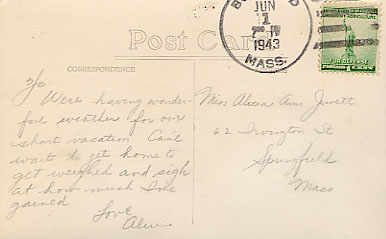 JUN
1
PM
1943
MASS.
FOR DEFENSE
Post Card
CORRESPONDENCE
Were having wonder-
ful weather for our
short vacation. Can't
wait to get home to
get weighed and sigh
at how much I've
gained
Love
Miss Ann Jewett
62 Irvington St
Springfield
Mass